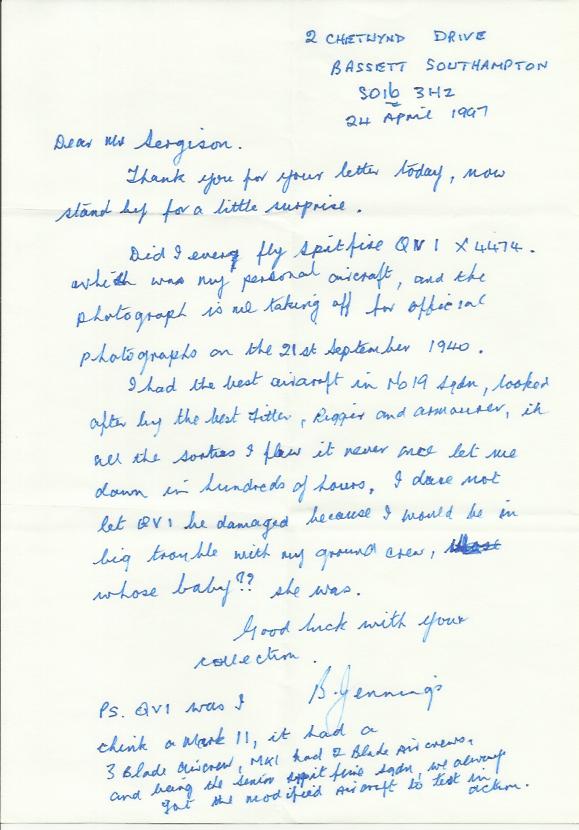 2 CHETWYND DRIVE
BASSETT SOUTHAMPTON
SO16 3HZ
24 April 1997
Dear Mr Sergison.
Thank you for your letter today, now
stand by for a little surprise.
Did I every fly Spitfire QV1 X4474.
which was my personal aircraft, and the
photograph is me taking off for official
photographs on the 21st September 1940.
I had the best aircraft in No19 Sqdn, looked
after by the best Fitter, Rigger and armourer, in
all the sorties I flew it never once let me
down in hundreds of hours. I dare not
let QV1 be damaged because I would be in
big trouble with my ground crew,
whose baby?? she was.
Good luck with your
collection.
B. Jennings
PS. QV1 was I
think a Mark 11, it had a
3 Blade aircrew, MK1 had 2 Blade Aircrews.
and being the senior spitfire sqdn, we always
got the modified Aircraft to test in
action.